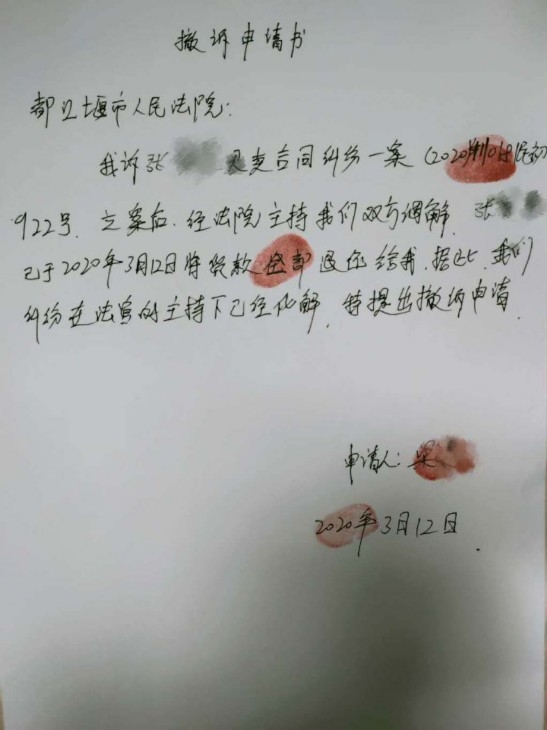 撤诉申请书
都江堰市人民法院:
我诉张 买卖合同纠纷一案 (2020)川0181民初
922号. 立案后. 经法院主持我们双方调解. 张
已于2020年3月12日将货款全部退还给我. 据此, 我们
纠纷在法官的主持下已经化解, 特提出撤诉申请.
申请人: 梁
2020年3月12日.